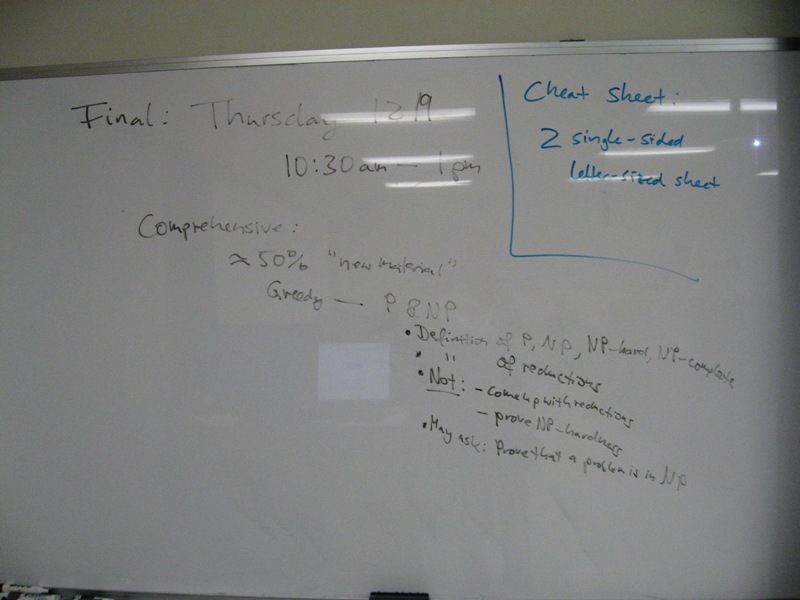 Final: Thursday 12/9
10:30am – 1pm
Cheat sheet:
2 single-sided
letter-sized sheet
Comprehensive:
≈50% "new material"
Greedy — P & NP
• Definition of P, NP, NP-hard, NP-complete
• " of reductions
• Not: - come up with reductions
- prove NP-hardness
• May ask: Prove that a problem is in NP